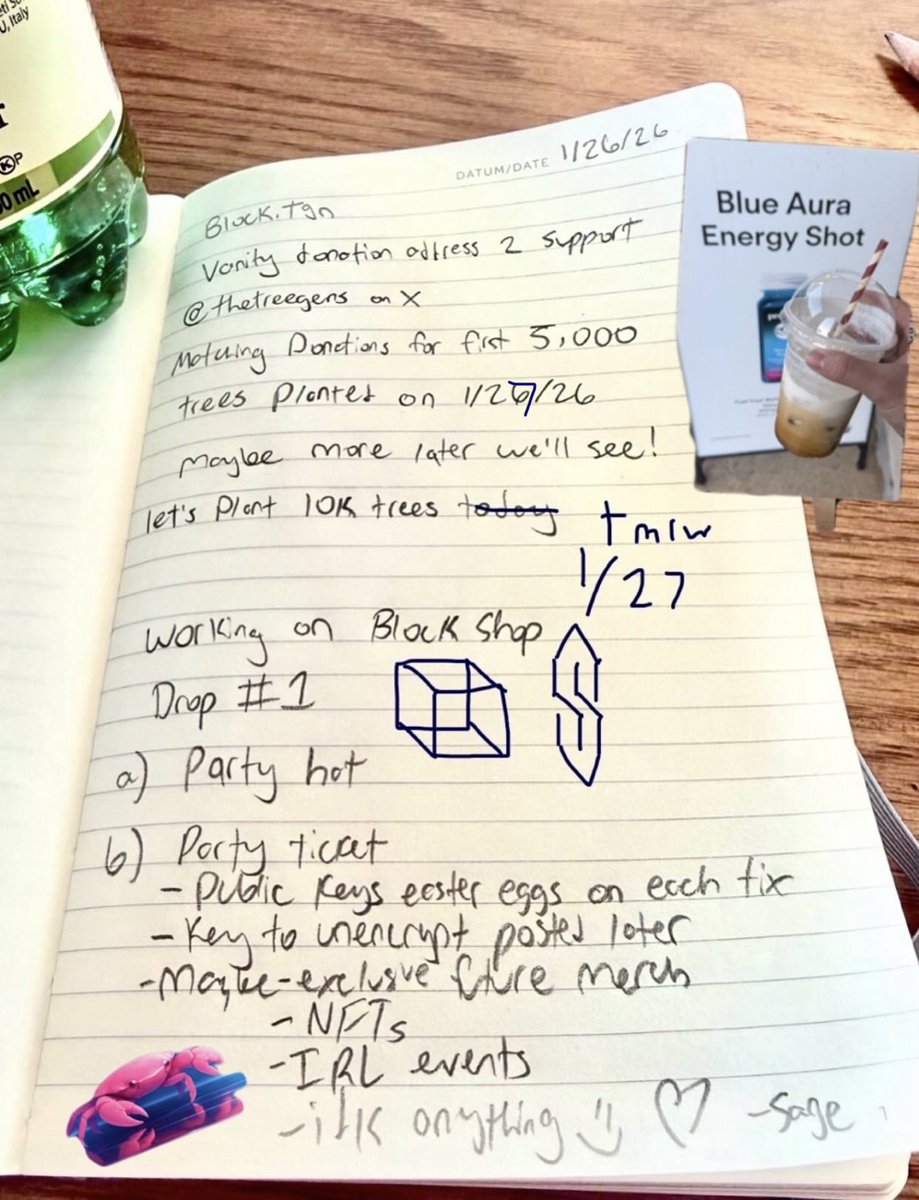 U, Italy
KP
0 mL
DATUM/DATE 1/26/26
Block.Tgn
Vanity donation address 2 support
@thetreegens on X
Matching Donations for first 5,000
trees Planted on 1/27/26
Maybe more later we'll see!
let's Plant 10K trees today tmrw
1/27
Working on Block Shop
Drop #1
a) Party hat
b) Party ticket
- Public Keys easter eggs on each tix
- Key to unencrypt posted later
- Maybe-exclusive future merch
- NFTs
- IRL events
- idk anything :) ♡ -Sage
Blue Aura
Energy Shot